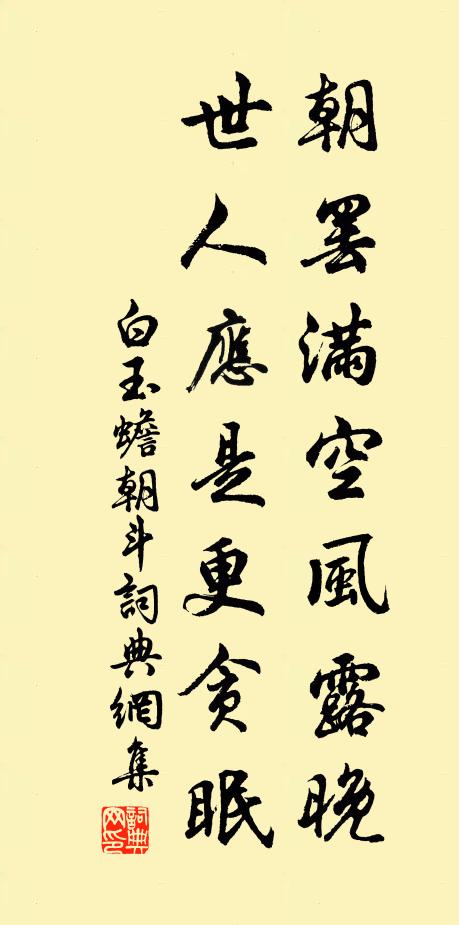 朝罷滿空風露晚
世人應是更貪眠
白玉蟾朝斗詞典網集
詞典網印